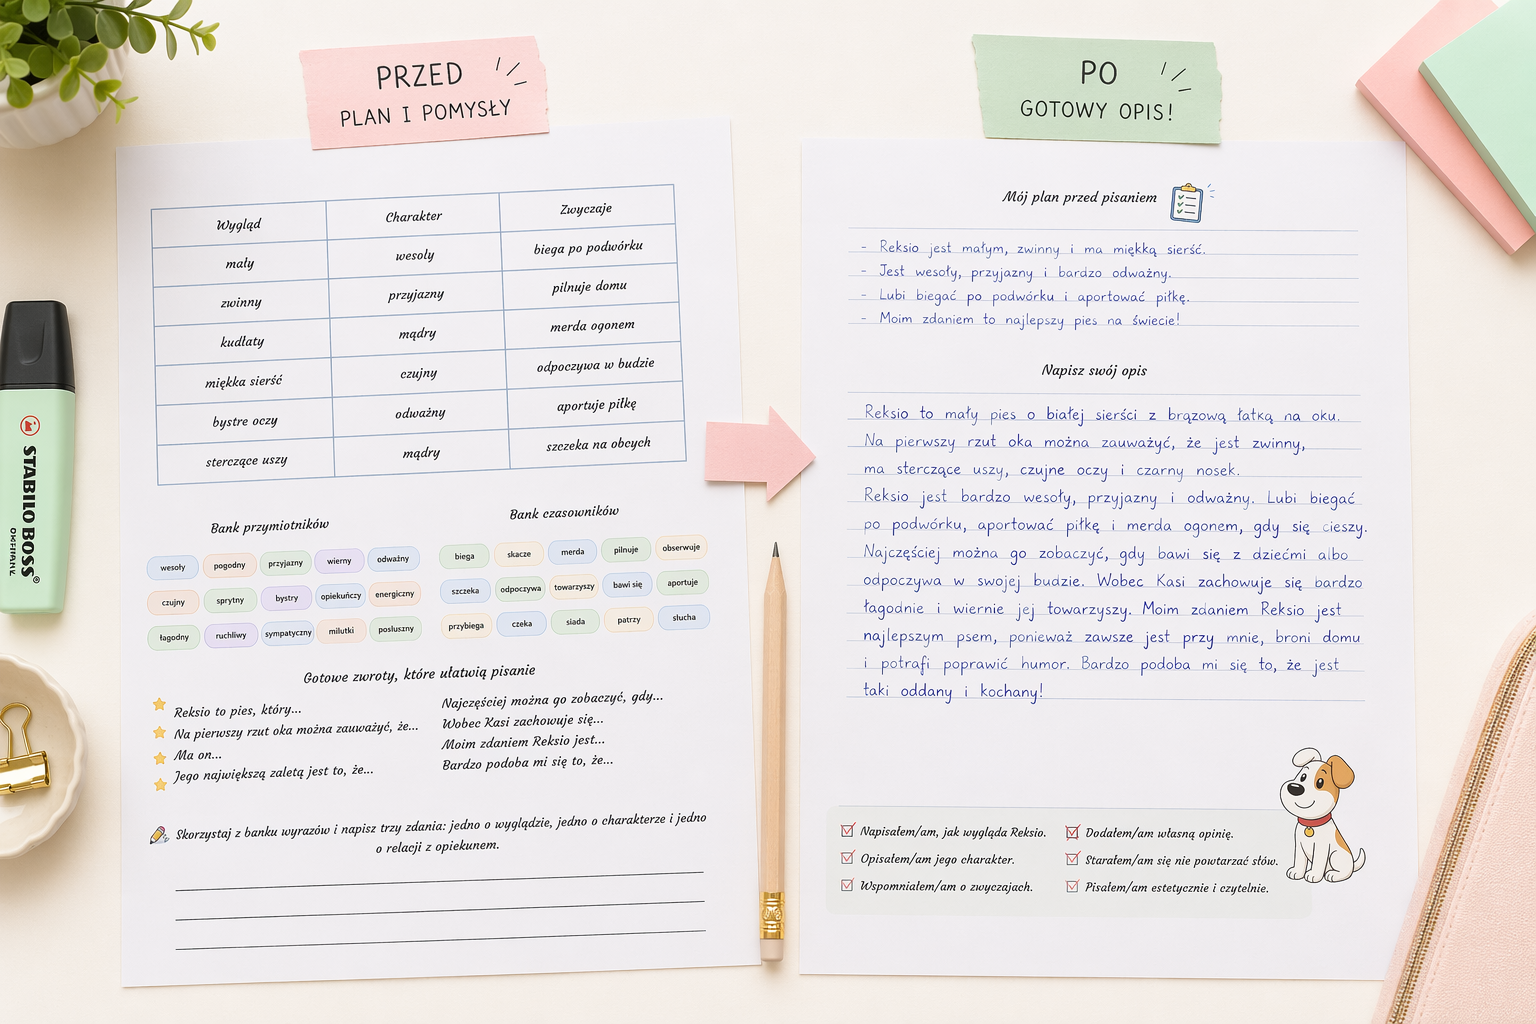 PRZED
PLAN I POMYSŁY
Wygląd Charakter Zwyczaje
mały wesoły biega po podwórku
zwinny przyjazny pilnuje domu
kudłaty mądry merda ogonem
miękka sierść czujny odpoczywa w budzie
bystre oczy odważny aportuje piłkę
sterczące uszy mądry szczeka na obcych
Bank przymiotników
wesoły pogodny przyjazny wierny odważny
czujny sprytny bystry opiekuńczy energiczny
łagodny ruchliwy sympatyczny milutki posłuszny
Bank czasowników
biega skacze merda pilnuje obserwuje
szczeka odpoczywa towarzyszy bawi się aportuje
przybiega czeka siada patrzy słucha
Gotowe zwroty, które ułatwią pisanie
Reksio to pies, który...
Na pierwszy rzut oka można zauważyć, że...
Ma on...
Jego największą zaletą jest to, że...
Najczęściej można go zobaczyć, gdy...
Wobec Kasi zachowuje się...
Moim zdaniem Reksio jest...
Bardzo podoba mi się to, że...
Skorzystaj z banku wyrazów i napisz trzy zdania: jedno o wyglądzie, jedno o charakterze i jedno
o relacji z opiekunem.
STABILO BOSS®
PO
GOTOWY OPIS!
Mój plan przed pisaniem
- Reksio jest małym, zwinny i ma miękką sierść.
- Jest wesoły, przyjazny i bardzo odważny.
- Lubi biegać po podwórku i aportować piłkę.
- Moim zdaniem to najlepszy pies na świecie!
Napisz swój opis
Reksio to mały pies o białej sierści z brązową łatką na oku.
Na pierwszy rzut oka można zauważyć, że jest zwinny,
ma sterczące uszy, czujne oczy i czarny nosek.
Reksio jest bardzo wesoły, przyjazny i odważny. Lubi biegać
po podwórku, aportować piłkę i merda ogonem, gdy się cieszy.
Najczęściej można go zobaczyć, gdy bawi się z dziećmi albo
odpoczywa w swojej budzie. Wobec Kasi zachowuje się bardzo
łagodnie i wiernie jej towarzyszy. Moim zdaniem Reksio jest
najlepszym psem, ponieważ zawsze jest przy mnie, broni domu
i potrafi poprawić humor. Bardzo podoba mi się to, że jest
taki oddany i kochany!
Napisałem/am, jak wygląda Reksio.
Opisałem/am jego charakter.
Wspomniałem/am o zwyczajach.
Dodałem/am własną opinię.
Starałem/am się nie powtarzać słów.
Pisałem/am estetycznie i czytelnie.